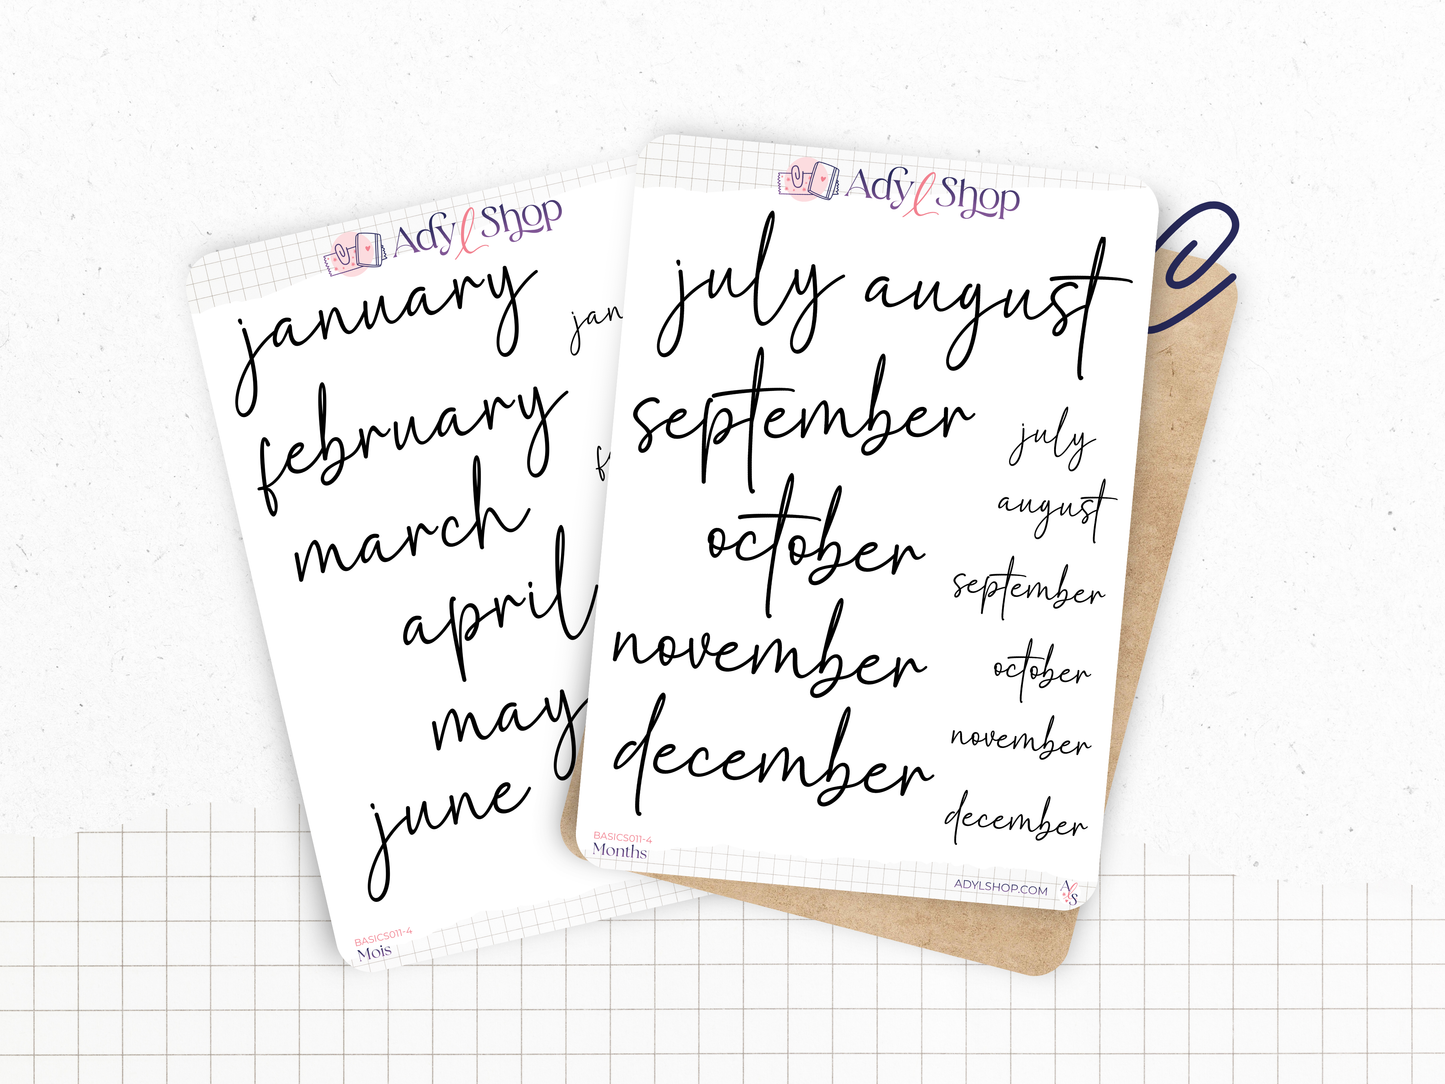 Adyl Shop
january
jan
february
f
march
april
may
june
BASICS011-4
Mois
Adyl Shop
july august
september
october
november
december
july
august
september
october
november
december
BASICS011-4
Months
ADYLSHOP.COM
AlS